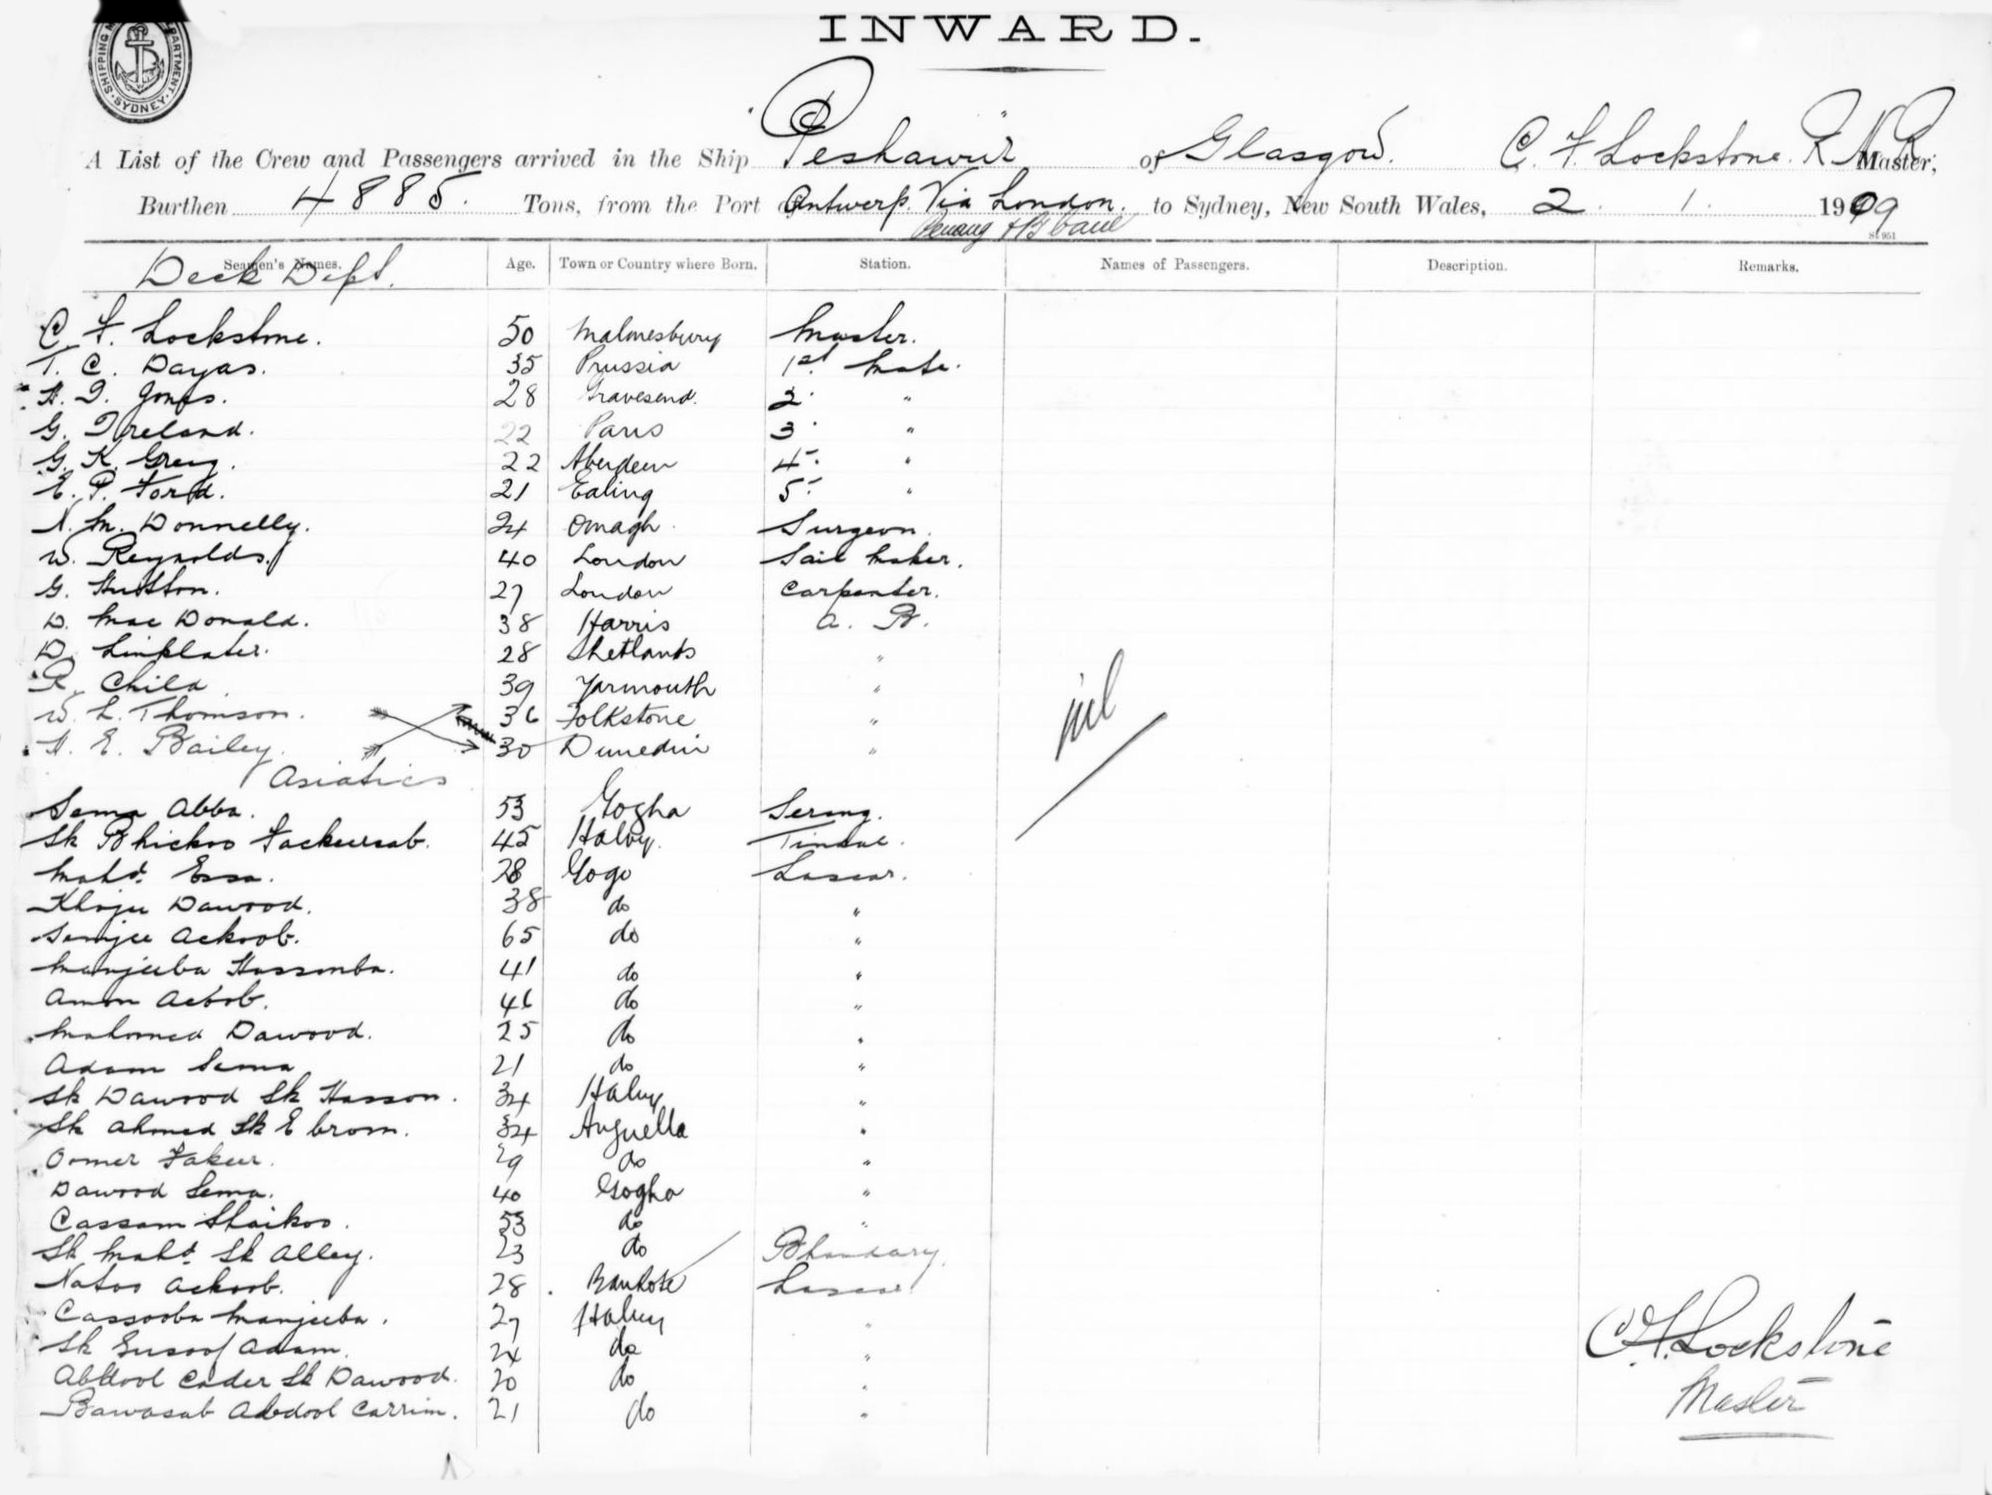 INWARD.
SHIPPING DEPARTMENT. SYDNEY.
A List of the Crew and Passengers arrived in the Ship Peshawur of Glasgow. C. F. Lockstone. R N R Master,
Burthen 4885. Tons, from the Port of Antwerp. Via London. to Sydney, New South Wales, 2. 1. 1909
Penang & Brisbane
St 951
Seamen's Names. Age. Town or Country where Born. Station. Names of Passengers. Description. Remarks.
Deck Dept.
C. F. Lockstone. 50 Malmesbury Master.
T. C. Dayas. 35 Prussia 1st Mate.
H. I. Jones. 28 Gravesend. 2 "
G. Ireland. 22 Paris 3 "
G. K. Greig. 22 Aberdeen 4 "
E. P. Ford. 21 Ealing 5 "
N. M. Donnelly. 24 Omagh Surgeon.
W. Reynolds. 40 London Sail Maker.
G. Hutton. 27 London Carpenter.
D. Mac Donald. 38 Harris A. B.
D. Linklater. 28 Shetlands "
R. Child 39 Yarmouth "
W. L. Thomson. 36 Folkstone "
H. E. Bailey. 30 Dunedin "
nil
Asiatics
Sema Abba. 53 Gogha Serang.
Sk Bhickoo Fackeersab. 45 Haloy. Tindal.
Mahd. Essa. 28 Gogo Lascar.
Khoju Dawood. 38 do "
Semjee Ackoob. 65 do "
Manjeeba Hassomba. 41 do "
Amon Acoob. 46 do "
Mahomed Dawood. 25 do "
Adam Sema 21 do "
Sk Dawood Sk Hasson. 34 Haloy "
Sk Ahmed Sk Ebrom. 34 Anjuella "
Oomer Fakeer. 29 do "
Dawood Sema. 40 Gogha "
Cassam Shaikoo. 53 do "
Sk Mahd. Sk Alley. 23 do Bhandary.
Natoo Ackoob. 28 Bankote Lascar
Cassooba Manjeeba. 27 Haloy "
Sk Eusoof Adam. 24 do "
Abdool Cader Sk Dawood. 20 do "
Bawasab Abdool Carrim. 21 do "
C. F. Lockstone
Master